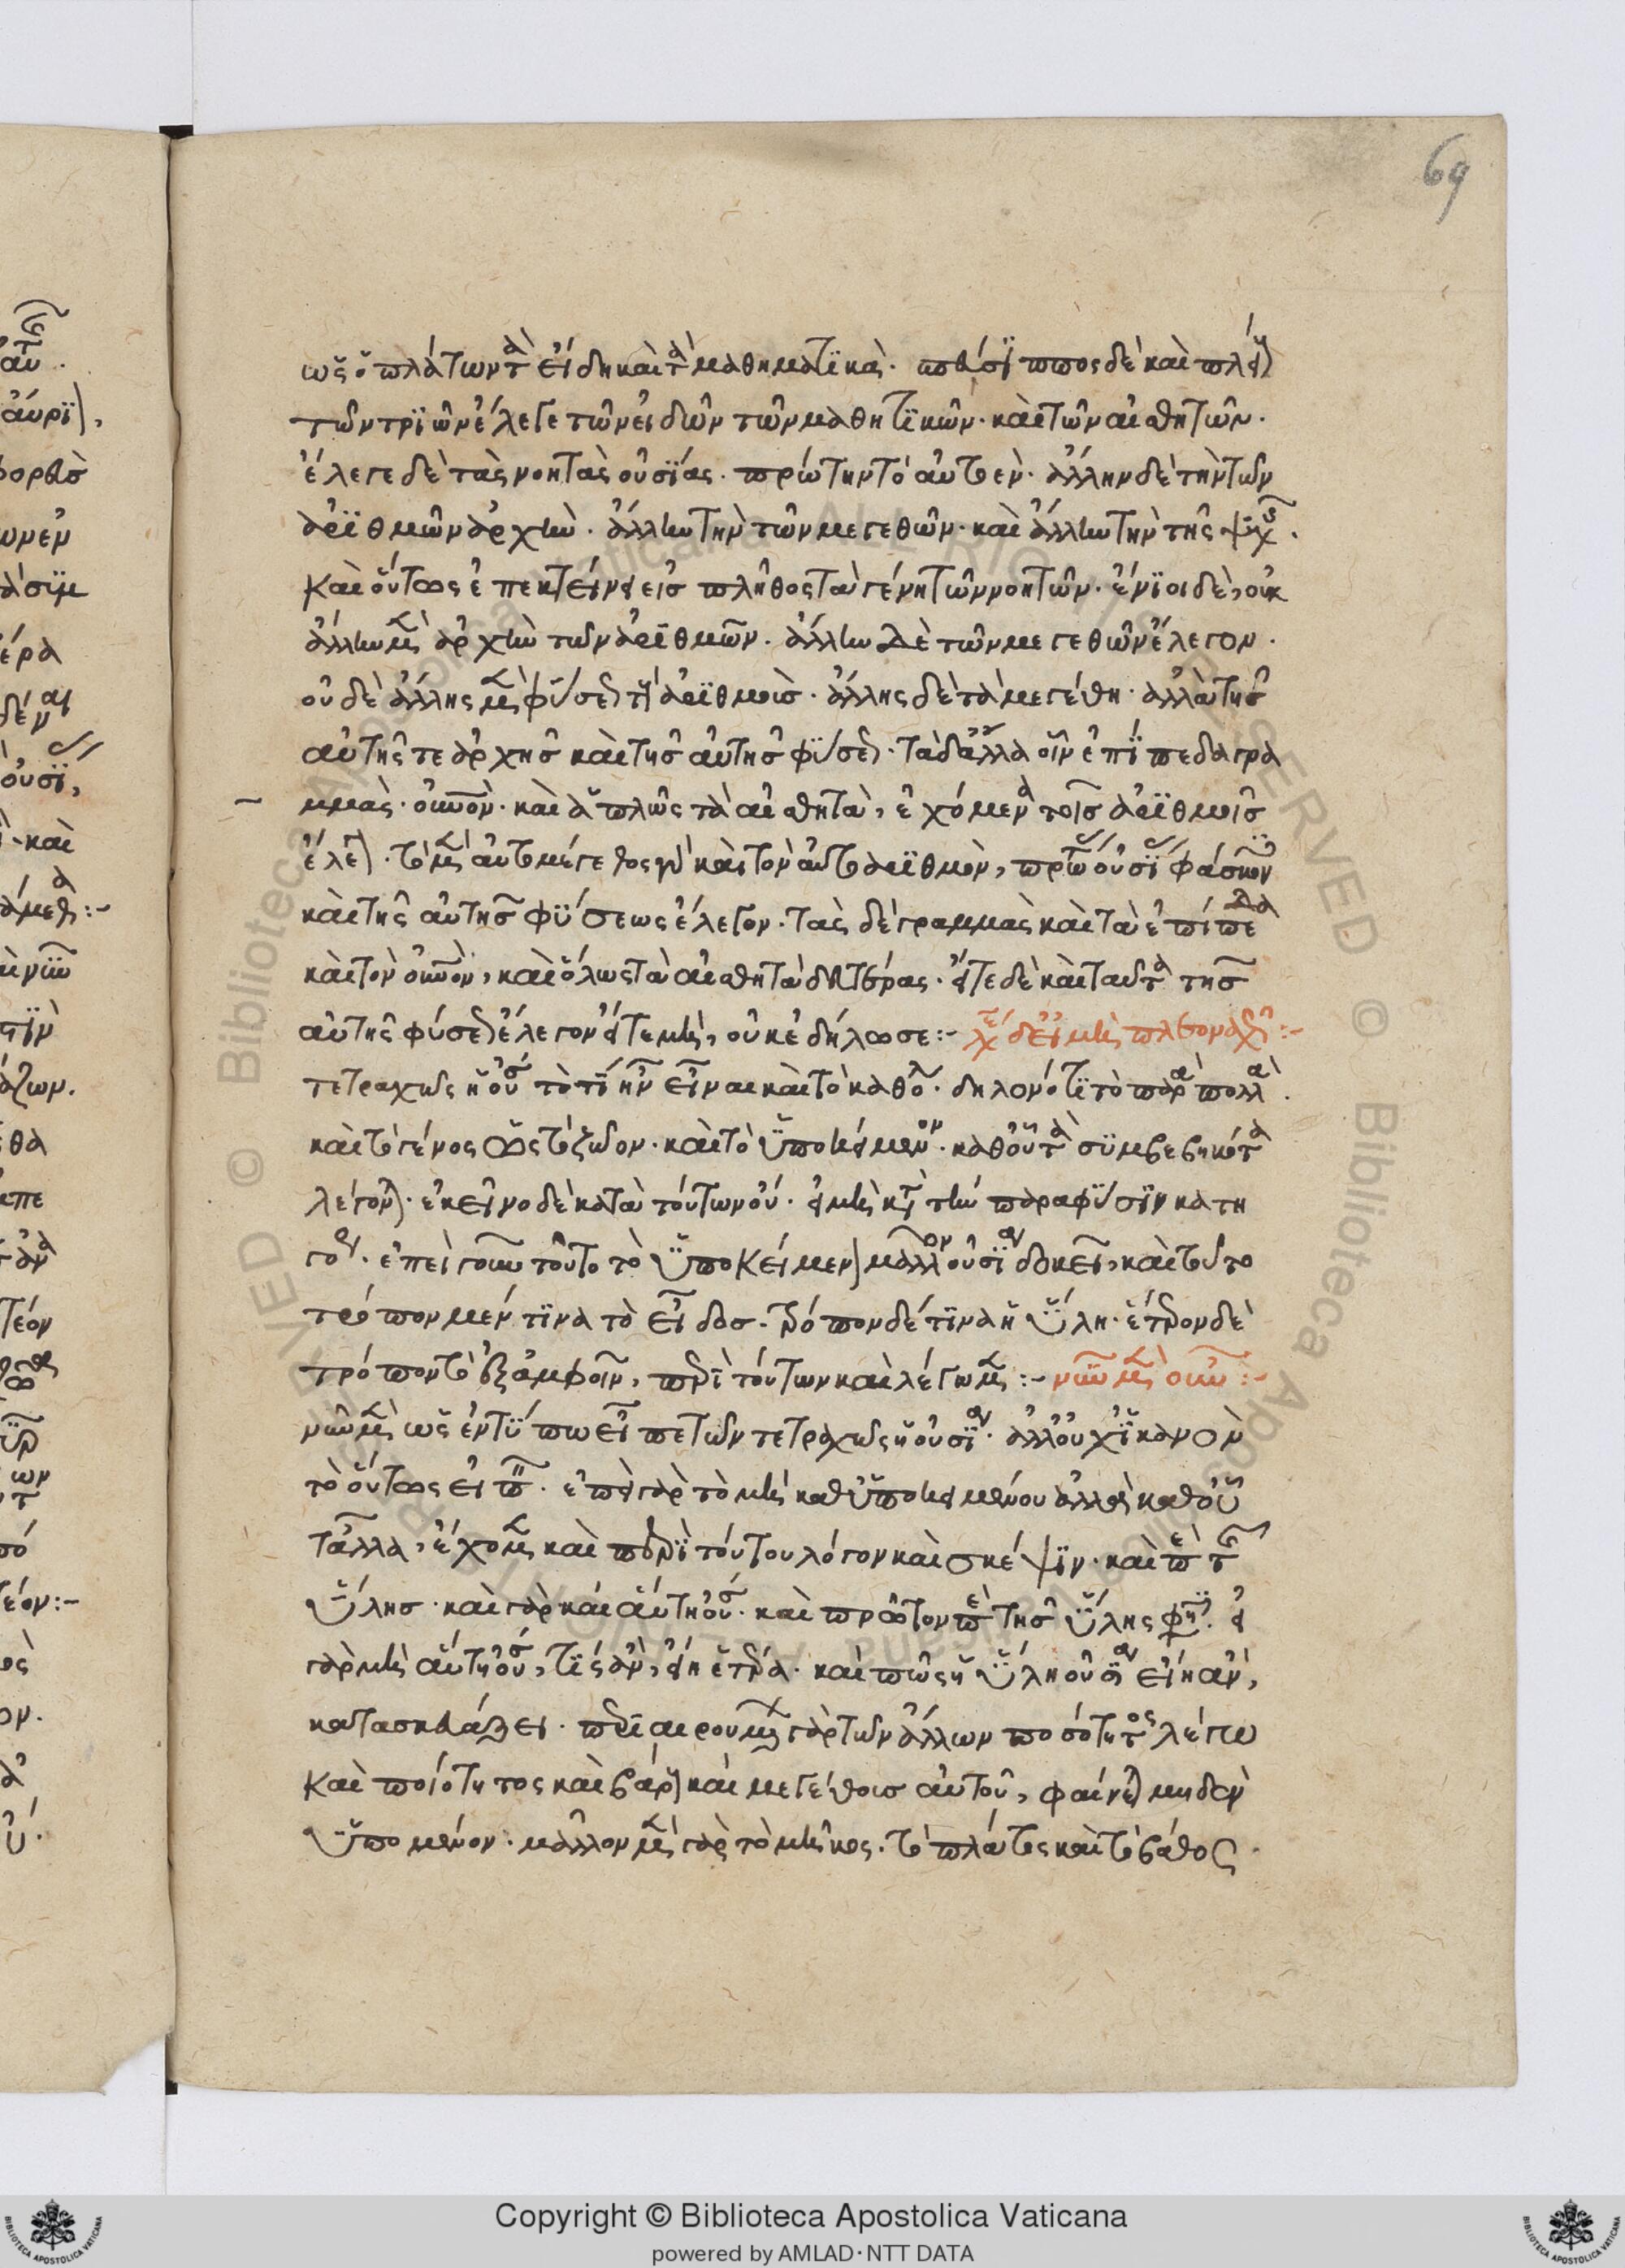 69
ὡς ὁ πλάτων τὰ εἴδη καὶ τὰ μαθηματικὰ. σπεύσιππος δὲ καὶ πλείω
τῶν τριῶν ἔλεγε τῶν εἰδῶν τῶν μαθητικῶν. καὶ τῶν αἰσθητῶν.
ἔλεγε δὲ τὰς νοητὰς οὐσίας. πρώτην τὸ αὐτοὲν. ἄλλην δὲ τὴν τῶν
ἀριθμῶν ἀρχὴν. ἄλλην τὴν τῶν μεγεθῶν. καὶ ἄλλην τὴν τῆς ψυχῆς.
καὶ οὕτως ἐπεκτείνει εἰς πλῆθος τὰ γένη τῶν νοητῶν. ἔνιοι δὲ, οὐκ
ἄλλην μὲν ἀρχὴν τῶν ἀριθμῶν. ἄλλην δὲ τῶν μεγεθῶν ἔλεγον.
οὐδὲ ἄλλης μὲν φύσεως τοὺς ἀριθμοὺς. ἄλλης δὲ τὰ μεγέθη. ἀλλὰ τῆς
αὐτῆς τε ἀρχῆς καὶ τῆς αὐτῆς φύσεως. τὰ δ' ἄλλα οἷον ἐπίπεδα γρα
μμὰς. οὐρανὸν. καὶ ἁπλῶς τὰ αἰσθητὰ, ἐχόμενα τοῖς ἀριθμοῖς
ἔλεγον. τὸ μὲν αὐτομέγεθος γὰρ καὶ τὸν αὐτοαριθμὸν, πρώτως οὐσίας φάσκων
καὶ τῆς αὐτῆς φύσεως ἔλεγον. τὰς δὲ γραμμὰς καὶ τὰ ἐπίπεδα
καὶ τὸν οὐρανὸν, καὶ ὅλως τὰ αἰσθητὰ δευτέρας. εἴτε δὲ καὶ ταῦτα τῆς
αὐτῆς φύσεως ἔλεγον εἴτε μὴ, οὐκ ἐδήλωσε:- λέγεται δ' εἰ μὴ πλεοναχῶς:-
τετραχῶς ἡ οὐσία τὸ τί ἦν εἶναι καὶ τὸ καθόλου. δηλονότι τὸ παρὰ πολλὰ.
καὶ τὸ γένος ὡς τὸ ζῶον. καὶ τὸ ὑποκείμενον. καθ' οὗ τὰ συμβεβηκότα
λέγονται. ἐκεῖνο δὲ κατὰ τούτων οὔ. εἰ μὴ κατὰ τὴν παραφύσιν κατη
γορίαν. ἐπεὶ γοῦν τοῦτο τὸ ὑποκείμενον μᾶλλον οὐσίαν δοκεῖ, καὶ τοῦτο
τρόπον μέν τινα τὸ εἶδος. τρόπον δέ τινα ἡ ὕλη. ἕτερον δὲ
τρόπον τὸ ἐξ ἀμφοῖν, περὶ τούτων καὶ λέγωμεν:- νῦν μὲν οὖν:-
νῦν μὲν ὡς ἐν τύπω εἶπε τῶν τετραχῶς ἡ οὐσία. ἀλλ' οὐχ ἱκανὸν
τὸ οὕτως εἰπεῖν. ἐπεὶ γὰρ τὸ μὴ καθ' ὑποκειμένου ἀλλὰ καθ' οὗ
τἆλλα, ἔχομεν καὶ περὶ τούτου λόγον καὶ σκέψιν. καὶ περὶ τῆς
ὕλης. καὶ γὰρ καὶ αὕτη οὐσία. καὶ πρῶτον περὶ τῆς ὕλης φησὶν. εἰ
γὰρ μὴ αὕτη οὐσία, τίς ἂν, εἴη ἑτέρα. καὶ πῶς ἡ ὕλη οὐσία εἴη ἂν,
κατασκευάζει. περιαιρουμένων γὰρ τῶν ἄλλων ποσότητος λέγω
καὶ ποιότητος καὶ βάρους καὶ μεγέθους αὐτοῦ, φαίνεται μηδὲν
ὑπομένον. μᾶλλον μὲν γὰρ τὸ μῆκος. τὸ πλάτος καὶ τὸ βάθος.
Copyright © Biblioteca Apostolica Vaticana
powered by AMLAD·NTT DATA